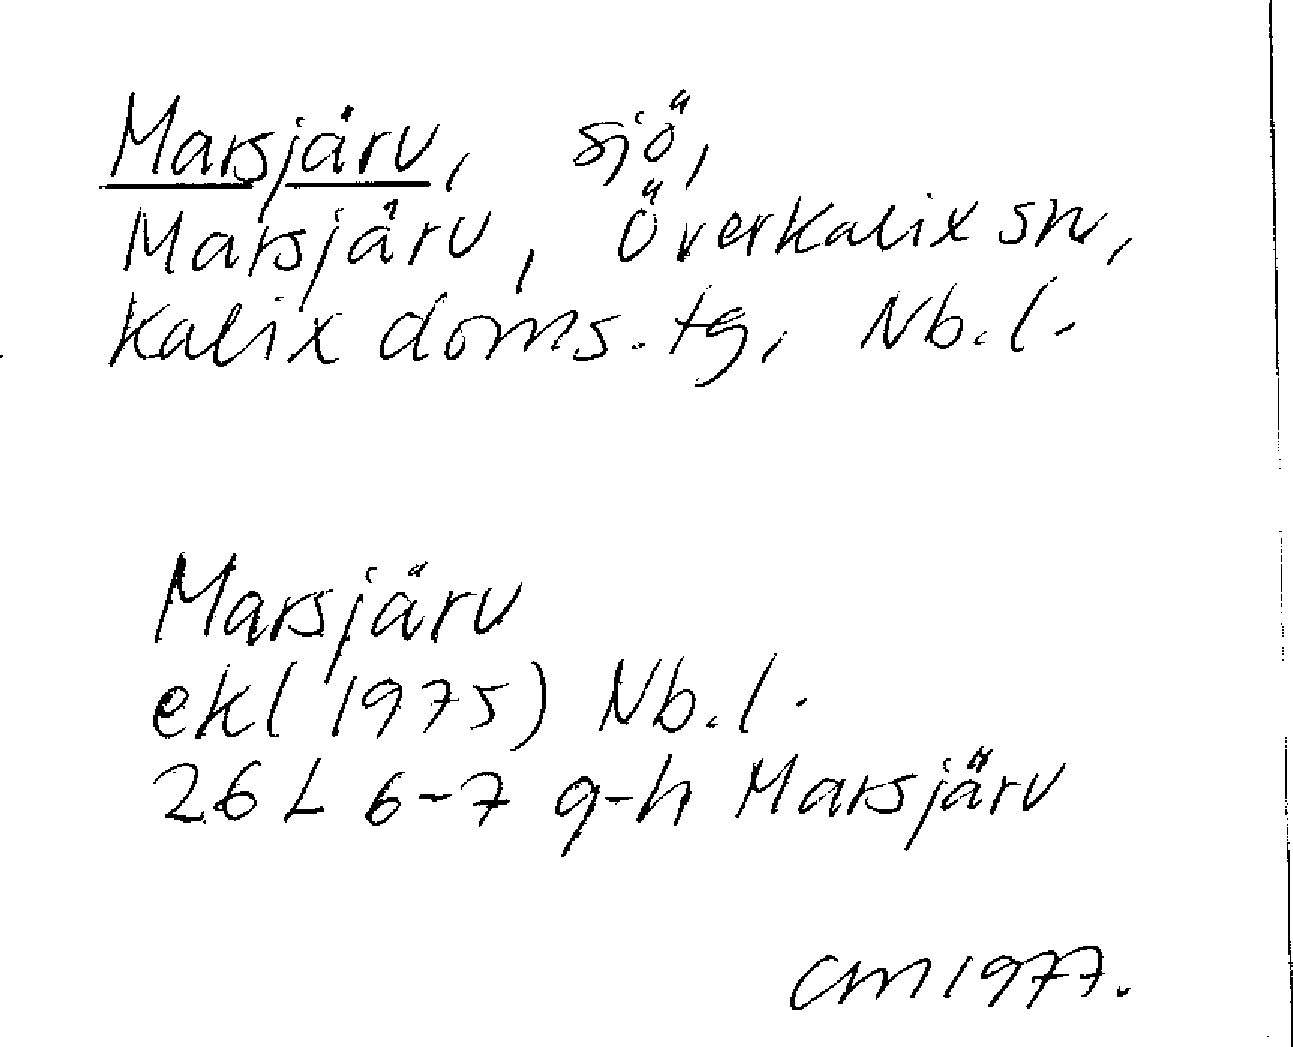 Marsjärv, sjö,
Marsjärv, Överkalix sn,
Kalix doms. tg, Nb. l.
Marsjärv
ek(1975) Nb. l.
26 L 6-7 g-h Marsjärv
CM 1977.